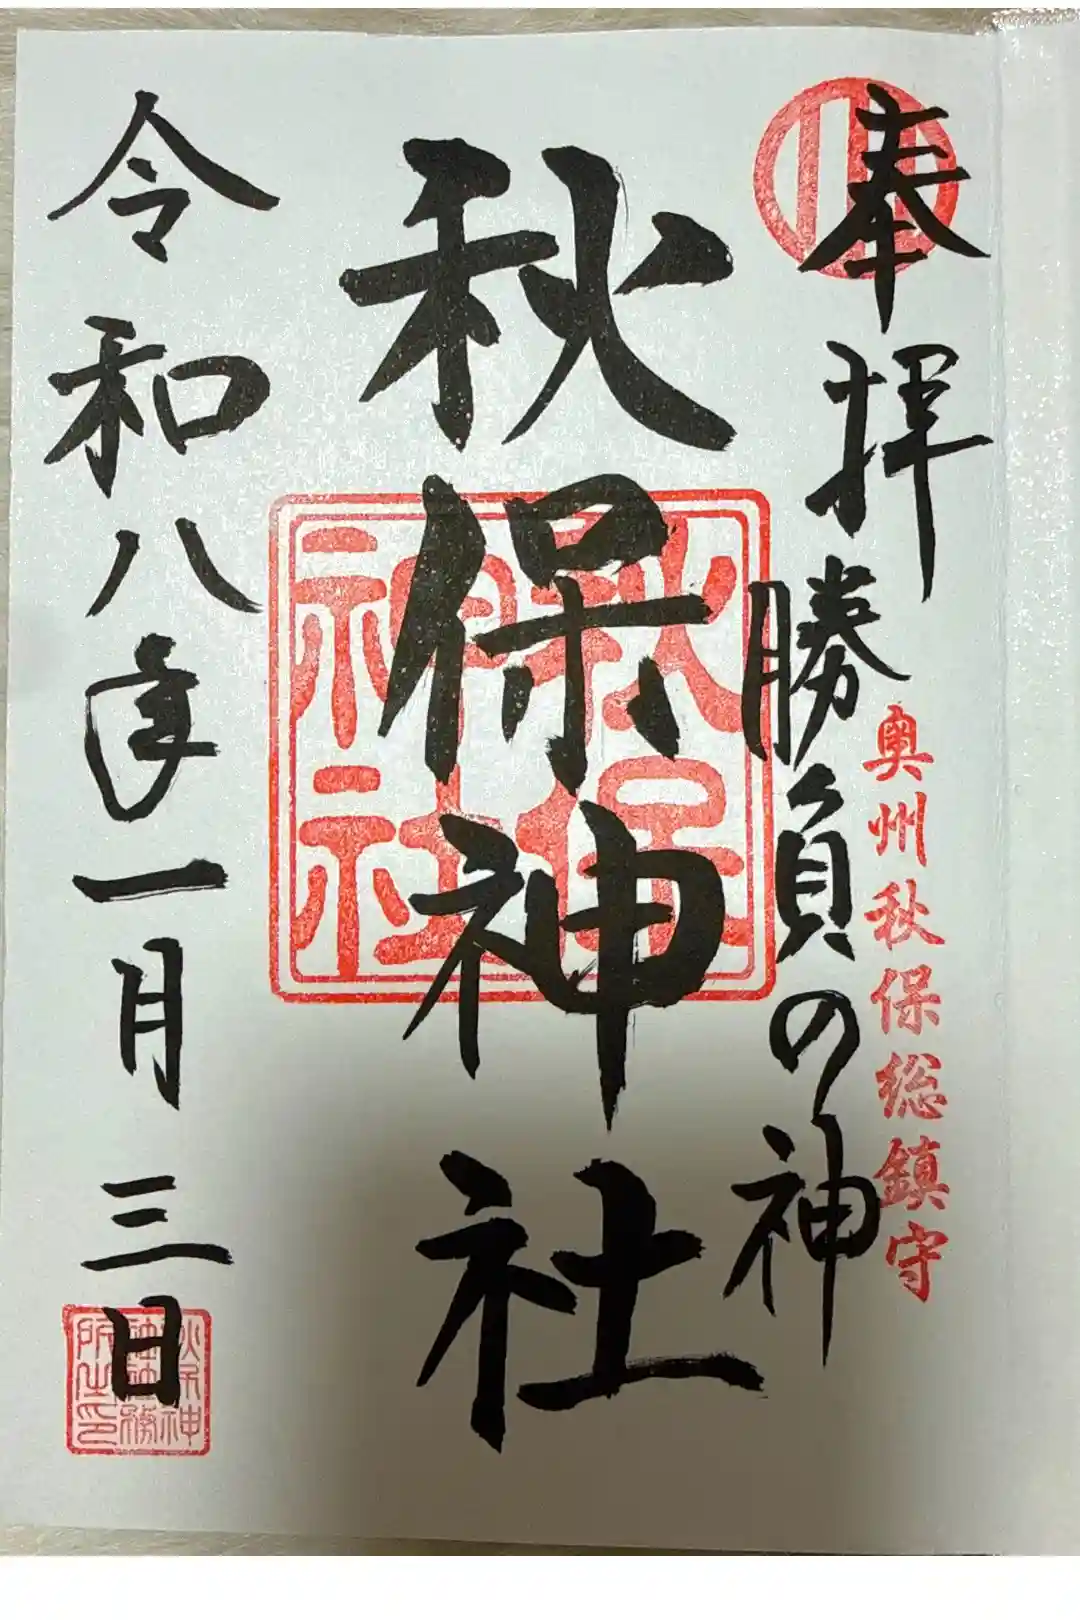 奉拝
勝負の神
奥州秋保総鎮守
秋保神社
秋保
神社
令和八年一月三日
秋保神
社社務
所之印